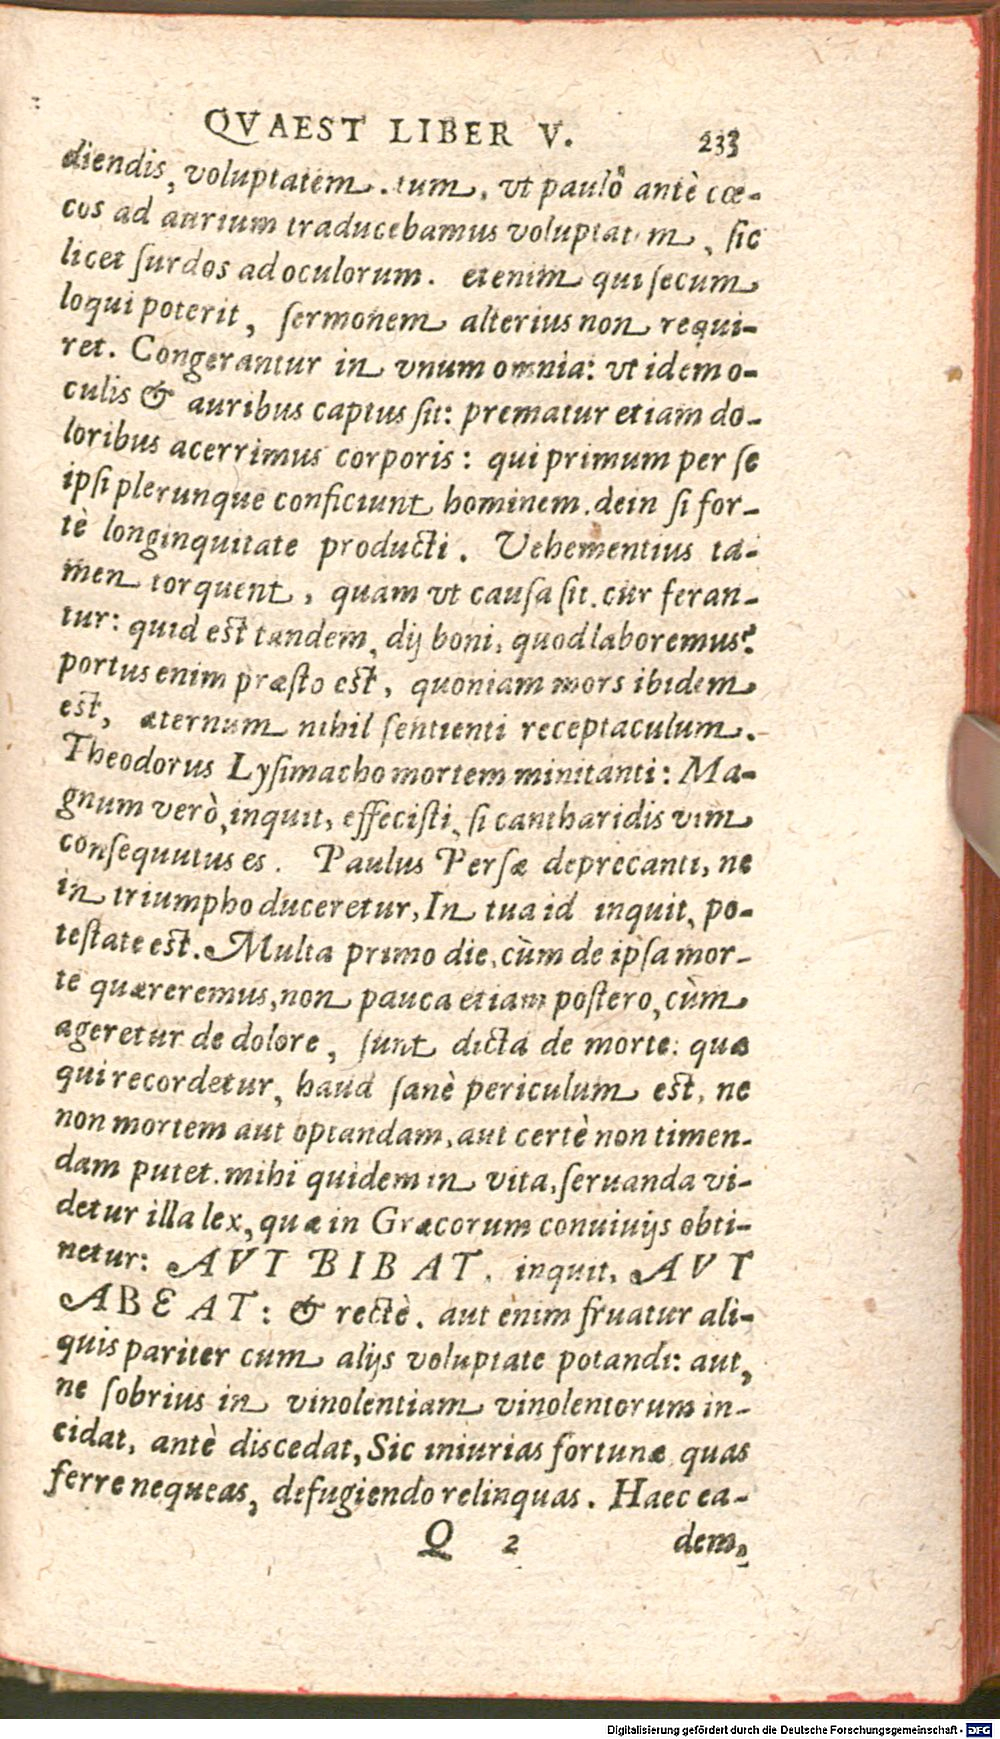 QVAEST LIBER V. 233
diendis, voluptatem. tum, vt paulò antè cœ-
cos ad aurium traducebamus voluptatem, sic
licet surdos ad oculorum. etenim qui secum
loqui poterit, sermonem alterius non requi-
ret. Congerantur in vnum omnia: vt idem o-
culis & auribus captus sit: prematur etiam do-
loribus acerrimus corporis: qui primum per se
ipsi plerunque conficiunt hominem. dein si for-
tè longinquitate producti. Vehementius ta-
men torquent, quam vt causa sit. cur feran-
tur: quid est tandem, dij boni, quod laboremus?
portus enim præsto est, quoniam mors ibidem
est, æternum nihil sentienti receptaculum.
Theodorus Lysimacho mortem minitanti: Ma-
gnum verò, inquit, effecisti, si cantharidis vim
consequutus es. Paulus Persæ deprecanti, ne
in triumpho duceretur, In tua id inquit, po-
testate est. Multa primo die, cùm de ipsa mor-
te quæreremus, non pauca etiam postero, cùm
ageretur de dolore, sunt dicta de morte: quæ
qui recordetur, haud sanè periculum est, ne
non mortem aut optandam, aut certè non timen-
dam putet. mihi quidem in vita, seruanda vi-
detur illa lex, quæ in Græcorum conuiuijs obti-
netur: AVT BIBAT, inquit, AVT
ABEAT: & rectè. aut enim fruatur ali-
quis pariter cum alijs voluptate potandi: aut,
ne sobrius in vinolentiam vinolentorum in-
cidat, antè discedat, Sic iniurias fortunæ quas
ferre nequeas, defugiendo relinquas. Haec ea-
Q 2 dem,
Digitalisierung gefördert durch die Deutsche Forschungsgemeinschaft - DFG